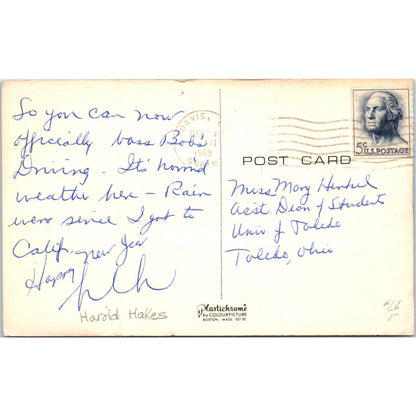 So you can now
officially boss Bob's
Driving. It's horrid
weather here - Rain
ever since I got to
Calif. - new Year
Happy
Harold Hakes
DAVIS,
PM
1969
5¢ U.S. POSTAGE
POST CARD
Miss Mary Henkel
Ass't Dean of Students
Univ of Toledo
Toledo, Ohio
Plastichrome
by COLOURPICTURE
BOSTON, MASS. 02130